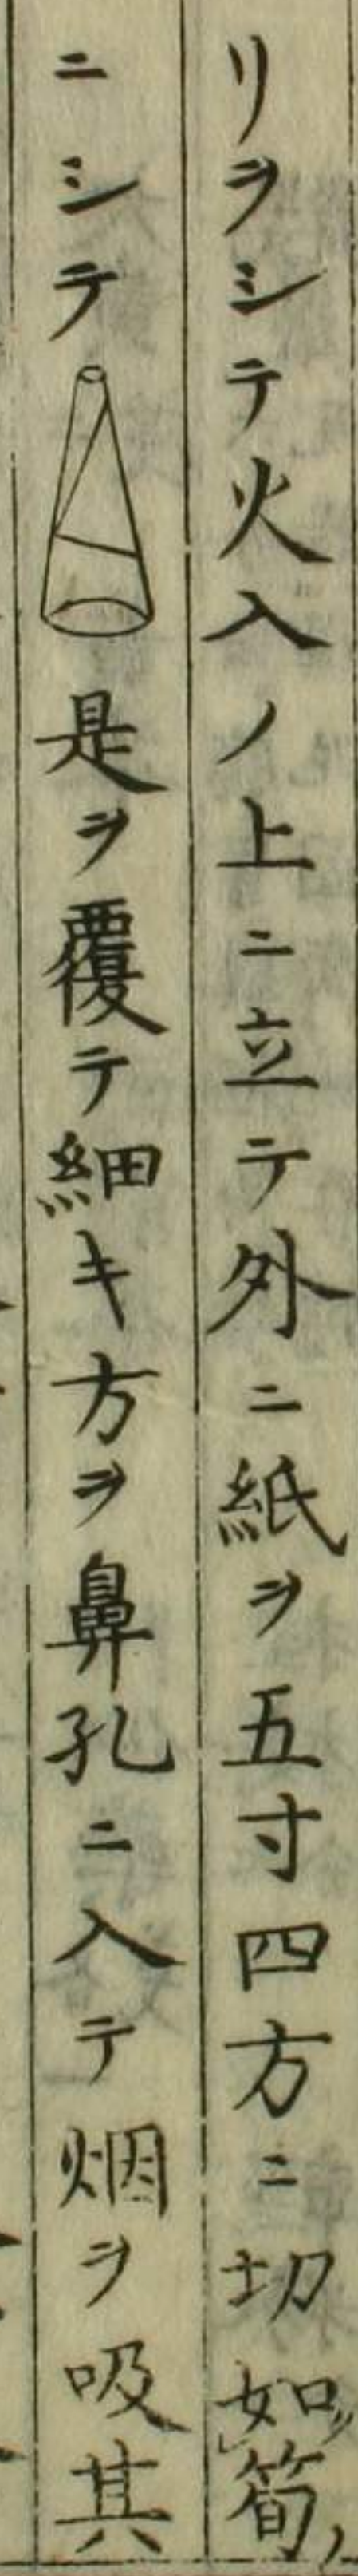 リヲシテ火入ノ上ニ立テ外ニ紙ヲ五寸四方ニ切如筍ノ
ニシテ是ヲ覆テ細キ方ヲ鼻孔ニ入テ烟ヲ吸其